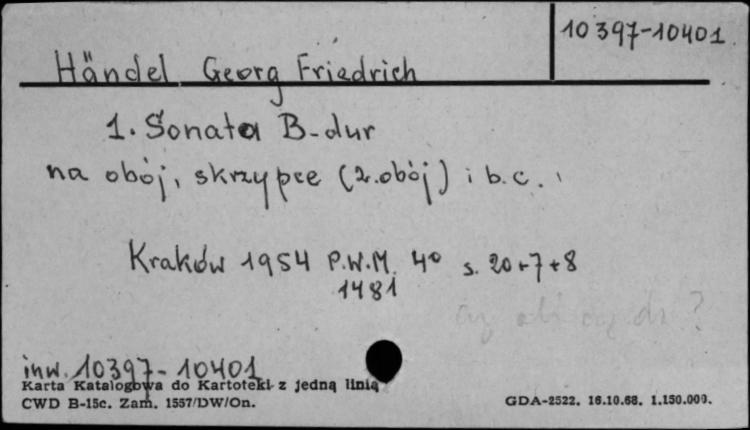 10397-10401
Händel Georg Friedrich
1. Sonata B-dur
na obój, skrzypce (2.obój) i b.c.
Kraków 1954 P.W.M. 4° s. 20+7+8
1481
inw. 10397-10401
Karta Katalogowa do Kartoteki z jedną linią
CWD B-15c. Zam. 1557/DW/On.
GDA-2522. 16.10.68. 1.150.000.